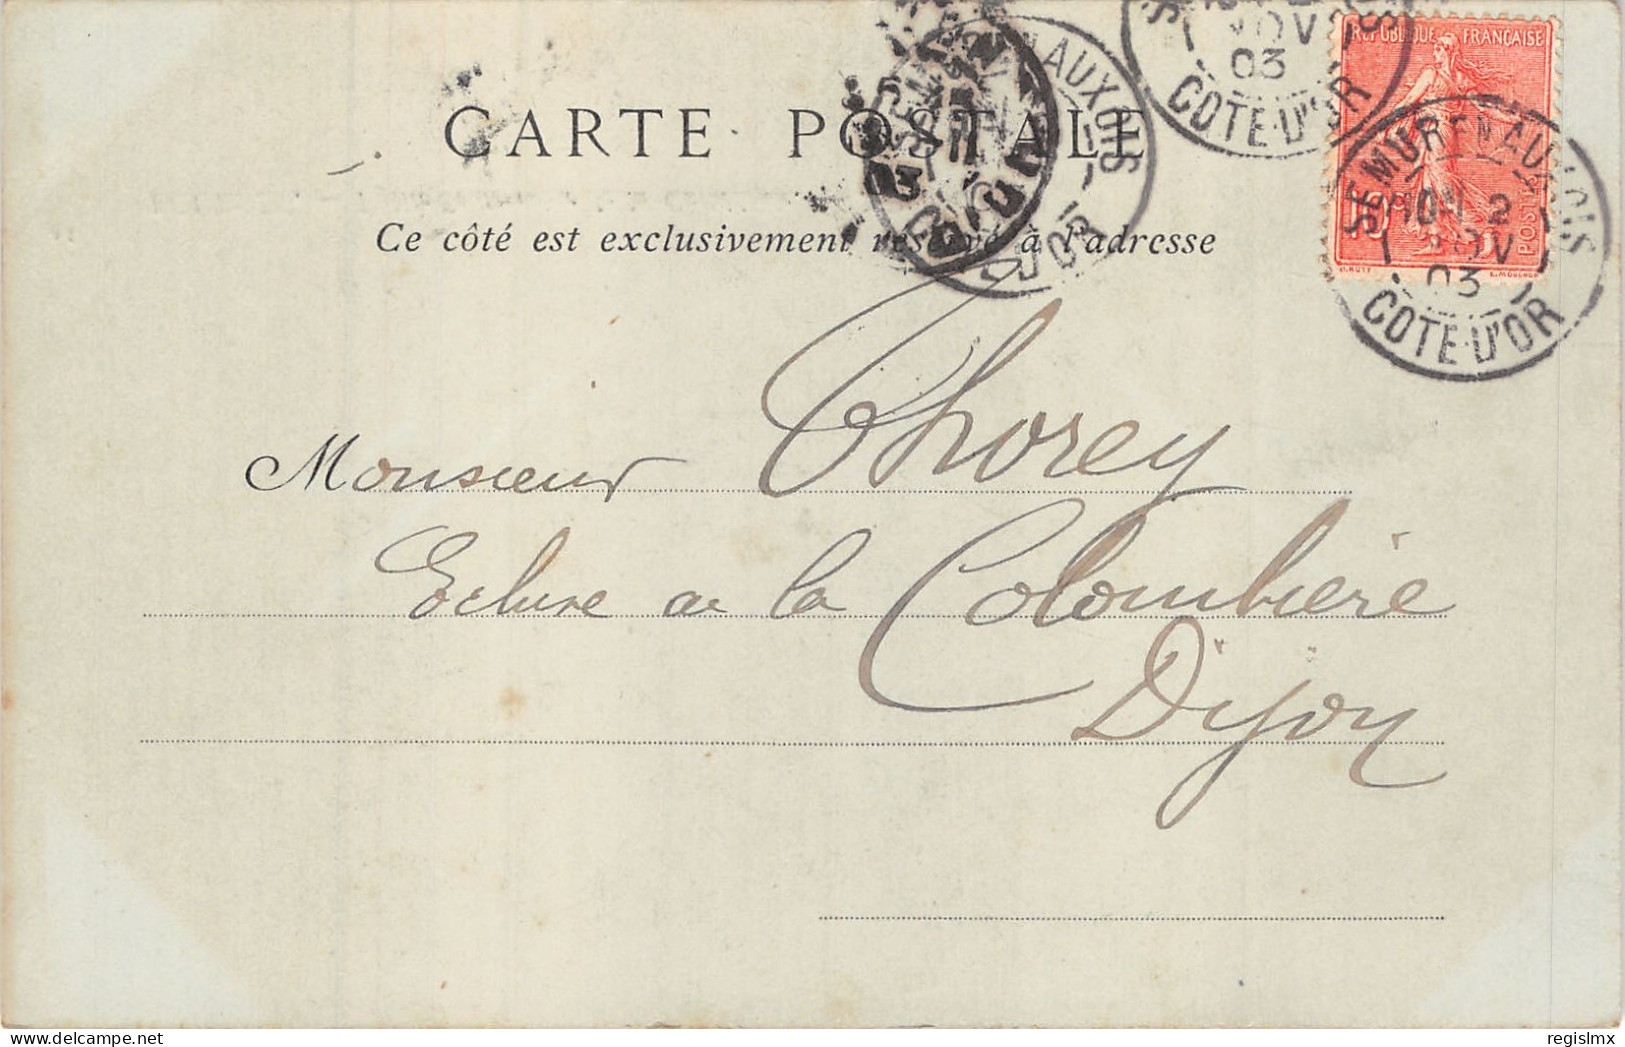 CARTE POSTALE
Ce côté est exclusivement réservé à l'adresse
RÉPUBLIQUE FRANÇAISE
10
POSTES
O. ROTY
E. MOUCHON
SEMUR EN AUXOIS
2
NOV
03
COTE-D'OR
NOV
03
COTE-D'OR
EN AUXOIS
D'OR
Monsieur Thorey
Ecluse de la Colombière
Dijon
regislmx